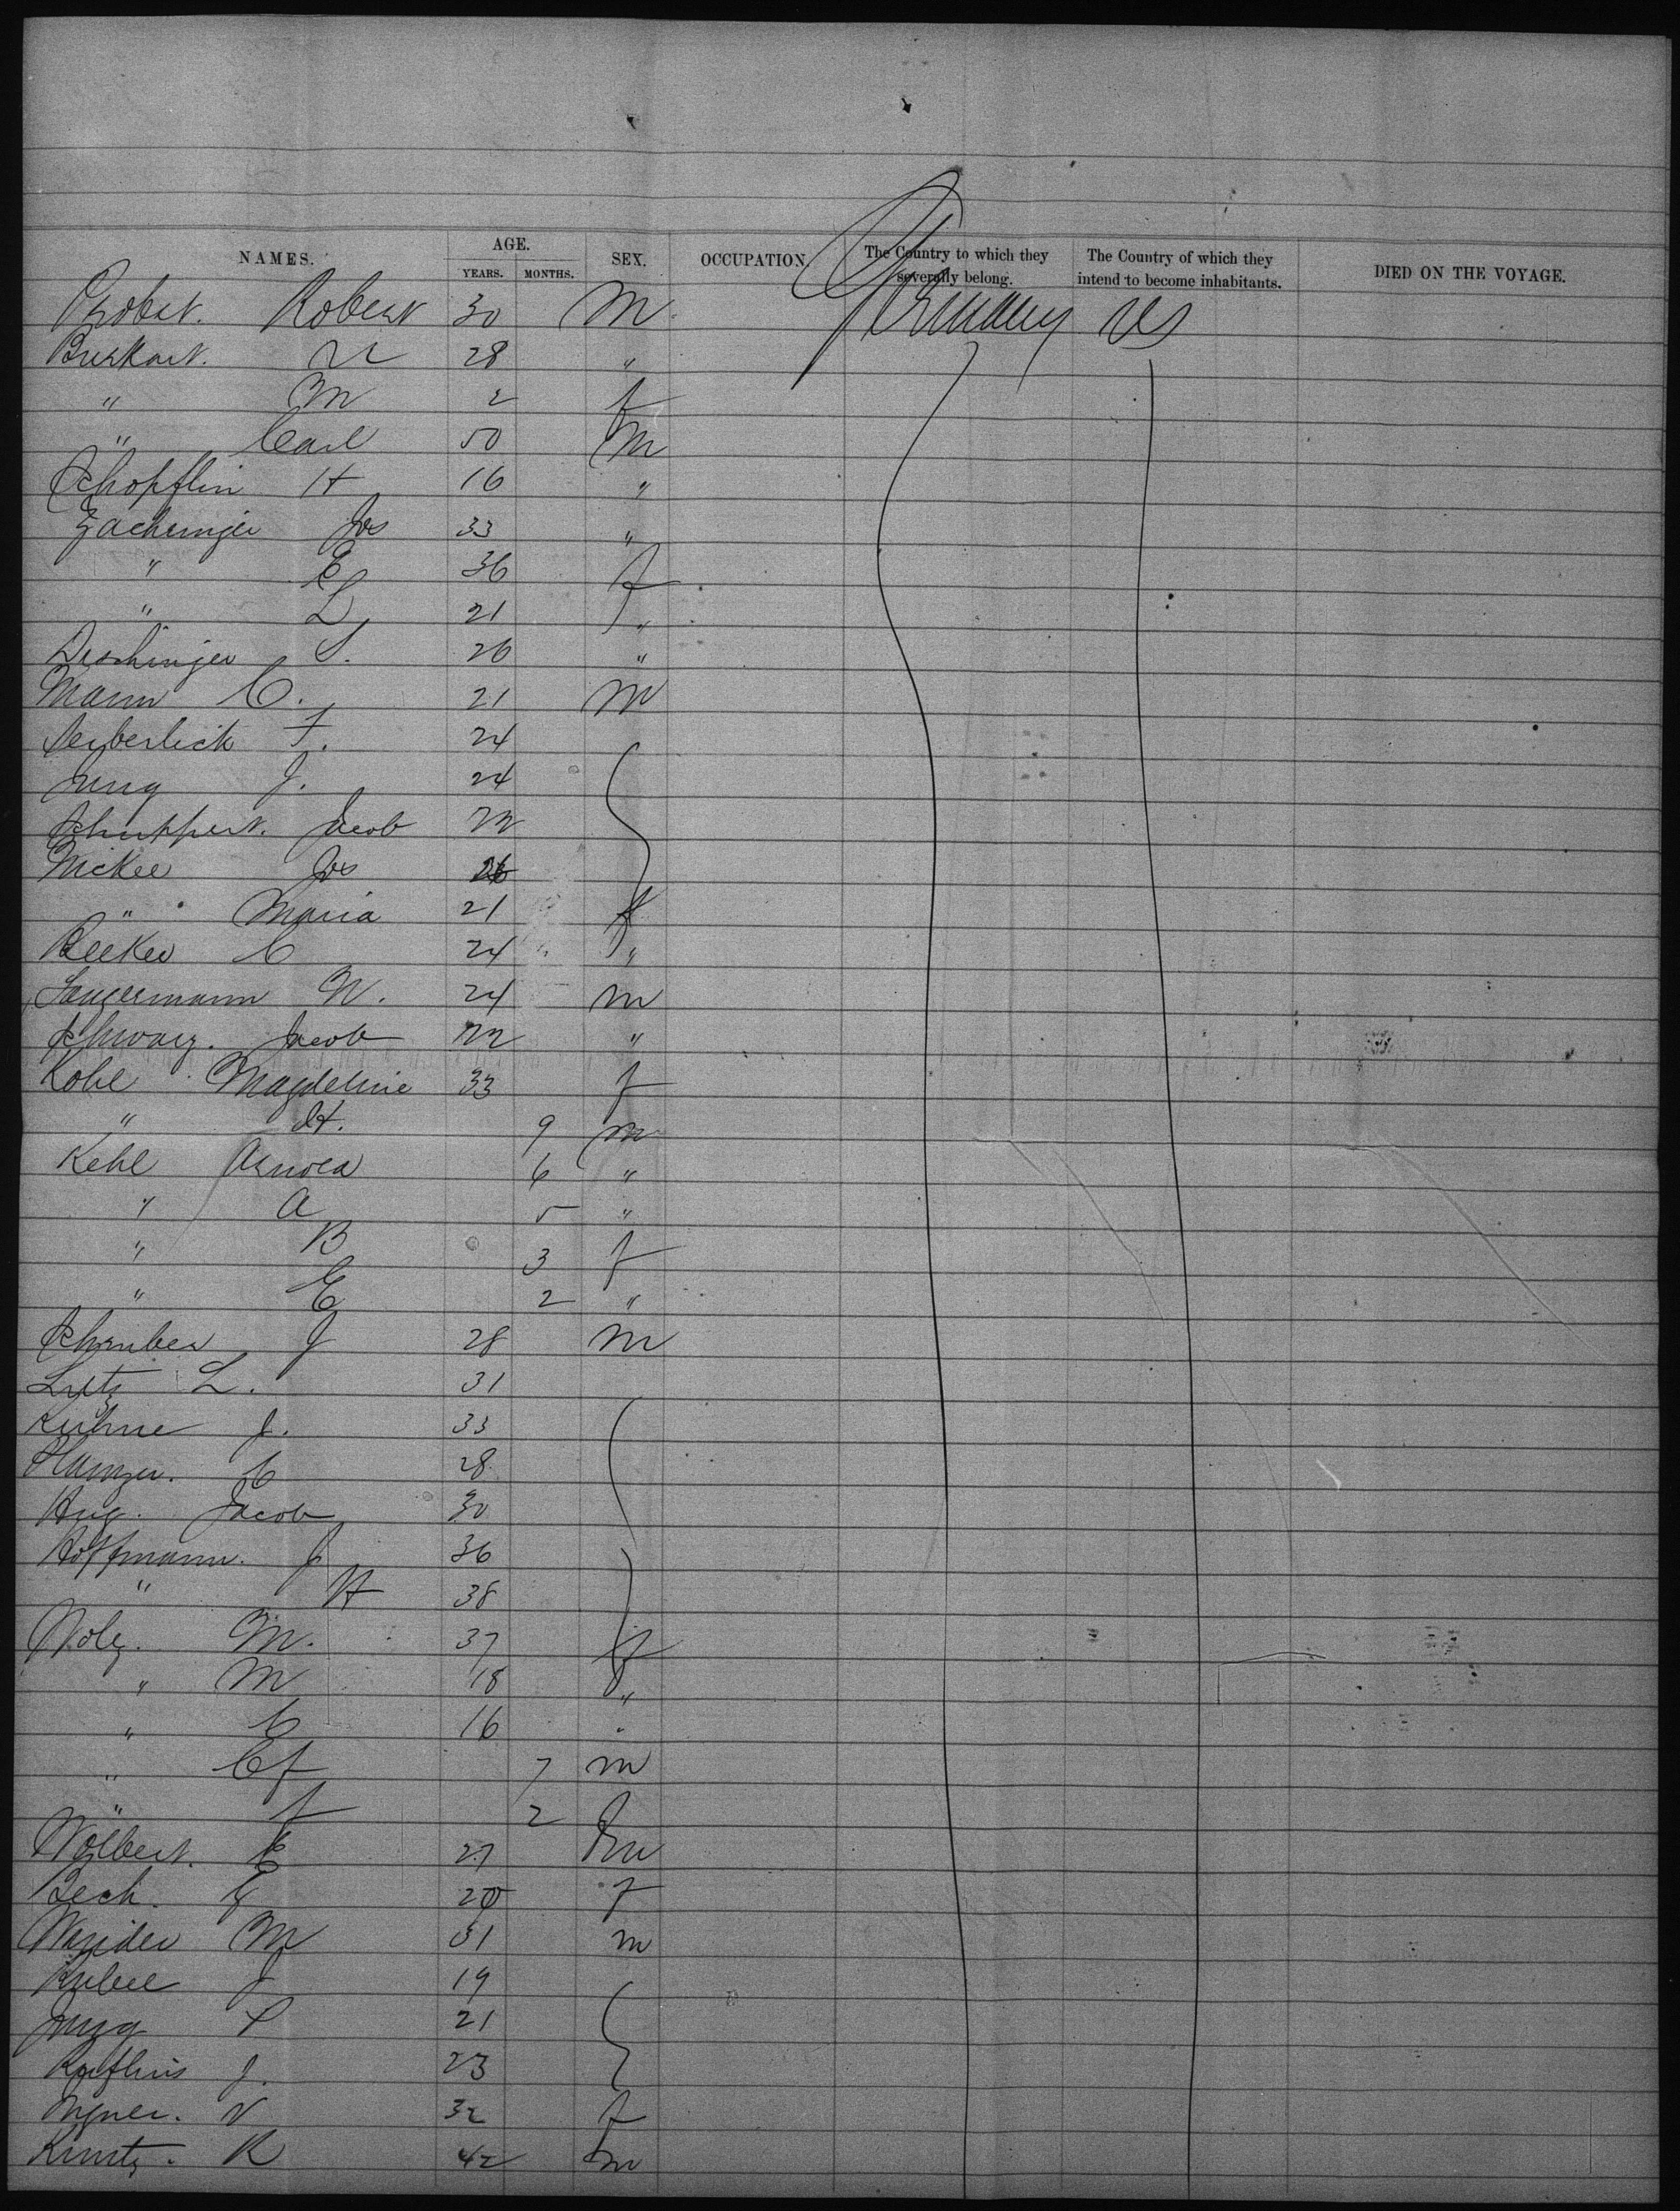 NAMES. AGE. YEARS. MONTHS. SEX. OCCUPATION. The Country to which they severally belong. The Country of which they intend to become inhabitants. DIED ON THE VOYAGE.
Probst. Robert 30 M Germany US
Burkart. 28 "
" M 2 f
" Carl 50 M
Schopflin H 16 "
Zacheringer Jos 33 "
" E 36 f
" L 21 "
Deschinger S. 26 "
Mann C. 21 M
Seiberlick F. 24
Jung J. 24
Schuppert. Jacob 22
Nickee Jos
" Maria 21 f
Becker C 24 "
Langermann W. 24 m
Schwarz. Jacob 22 "
Kohl Magdeline 33 f
" H. 9 m
Kehl Arnold 6 "
" A 5 "
" B 3 f
" E 2 "
Schruber J 28 M
Lutz L. 31
Kuhne J. 33
C 28
Hug. Jacob 30
Hoffmann. J 36
" H 38
Wolz. M. 37 f
" M 18 "
" C 16 "
" Cf 7 m
" f 2
Wolbert. E 27 m
Bech. 20 f
M 31 m
Kubel J 19
Jung P 21
J. 23
V 32 f
Kuntz. R 42 m